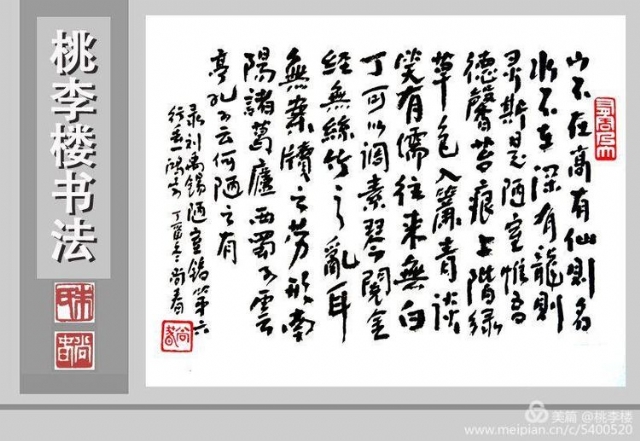 桃李楼书法
山不在高有仙則名
水不在深有龍則
灵斯是陋室惟吾
德馨苔痕上階緑
草色入簾青談
笑有儒往来無白
丁可以调素琴閱金
經無絲竹之亂耳
無案牘之劳形南
陽諸葛廬西蜀子雲
亭孔子云何陋之有
录刘禹锡陋室銘第六
行遗鸿字丁酉冬尚
美篇 @桃李楼
www.meipian.cn/c/5400520